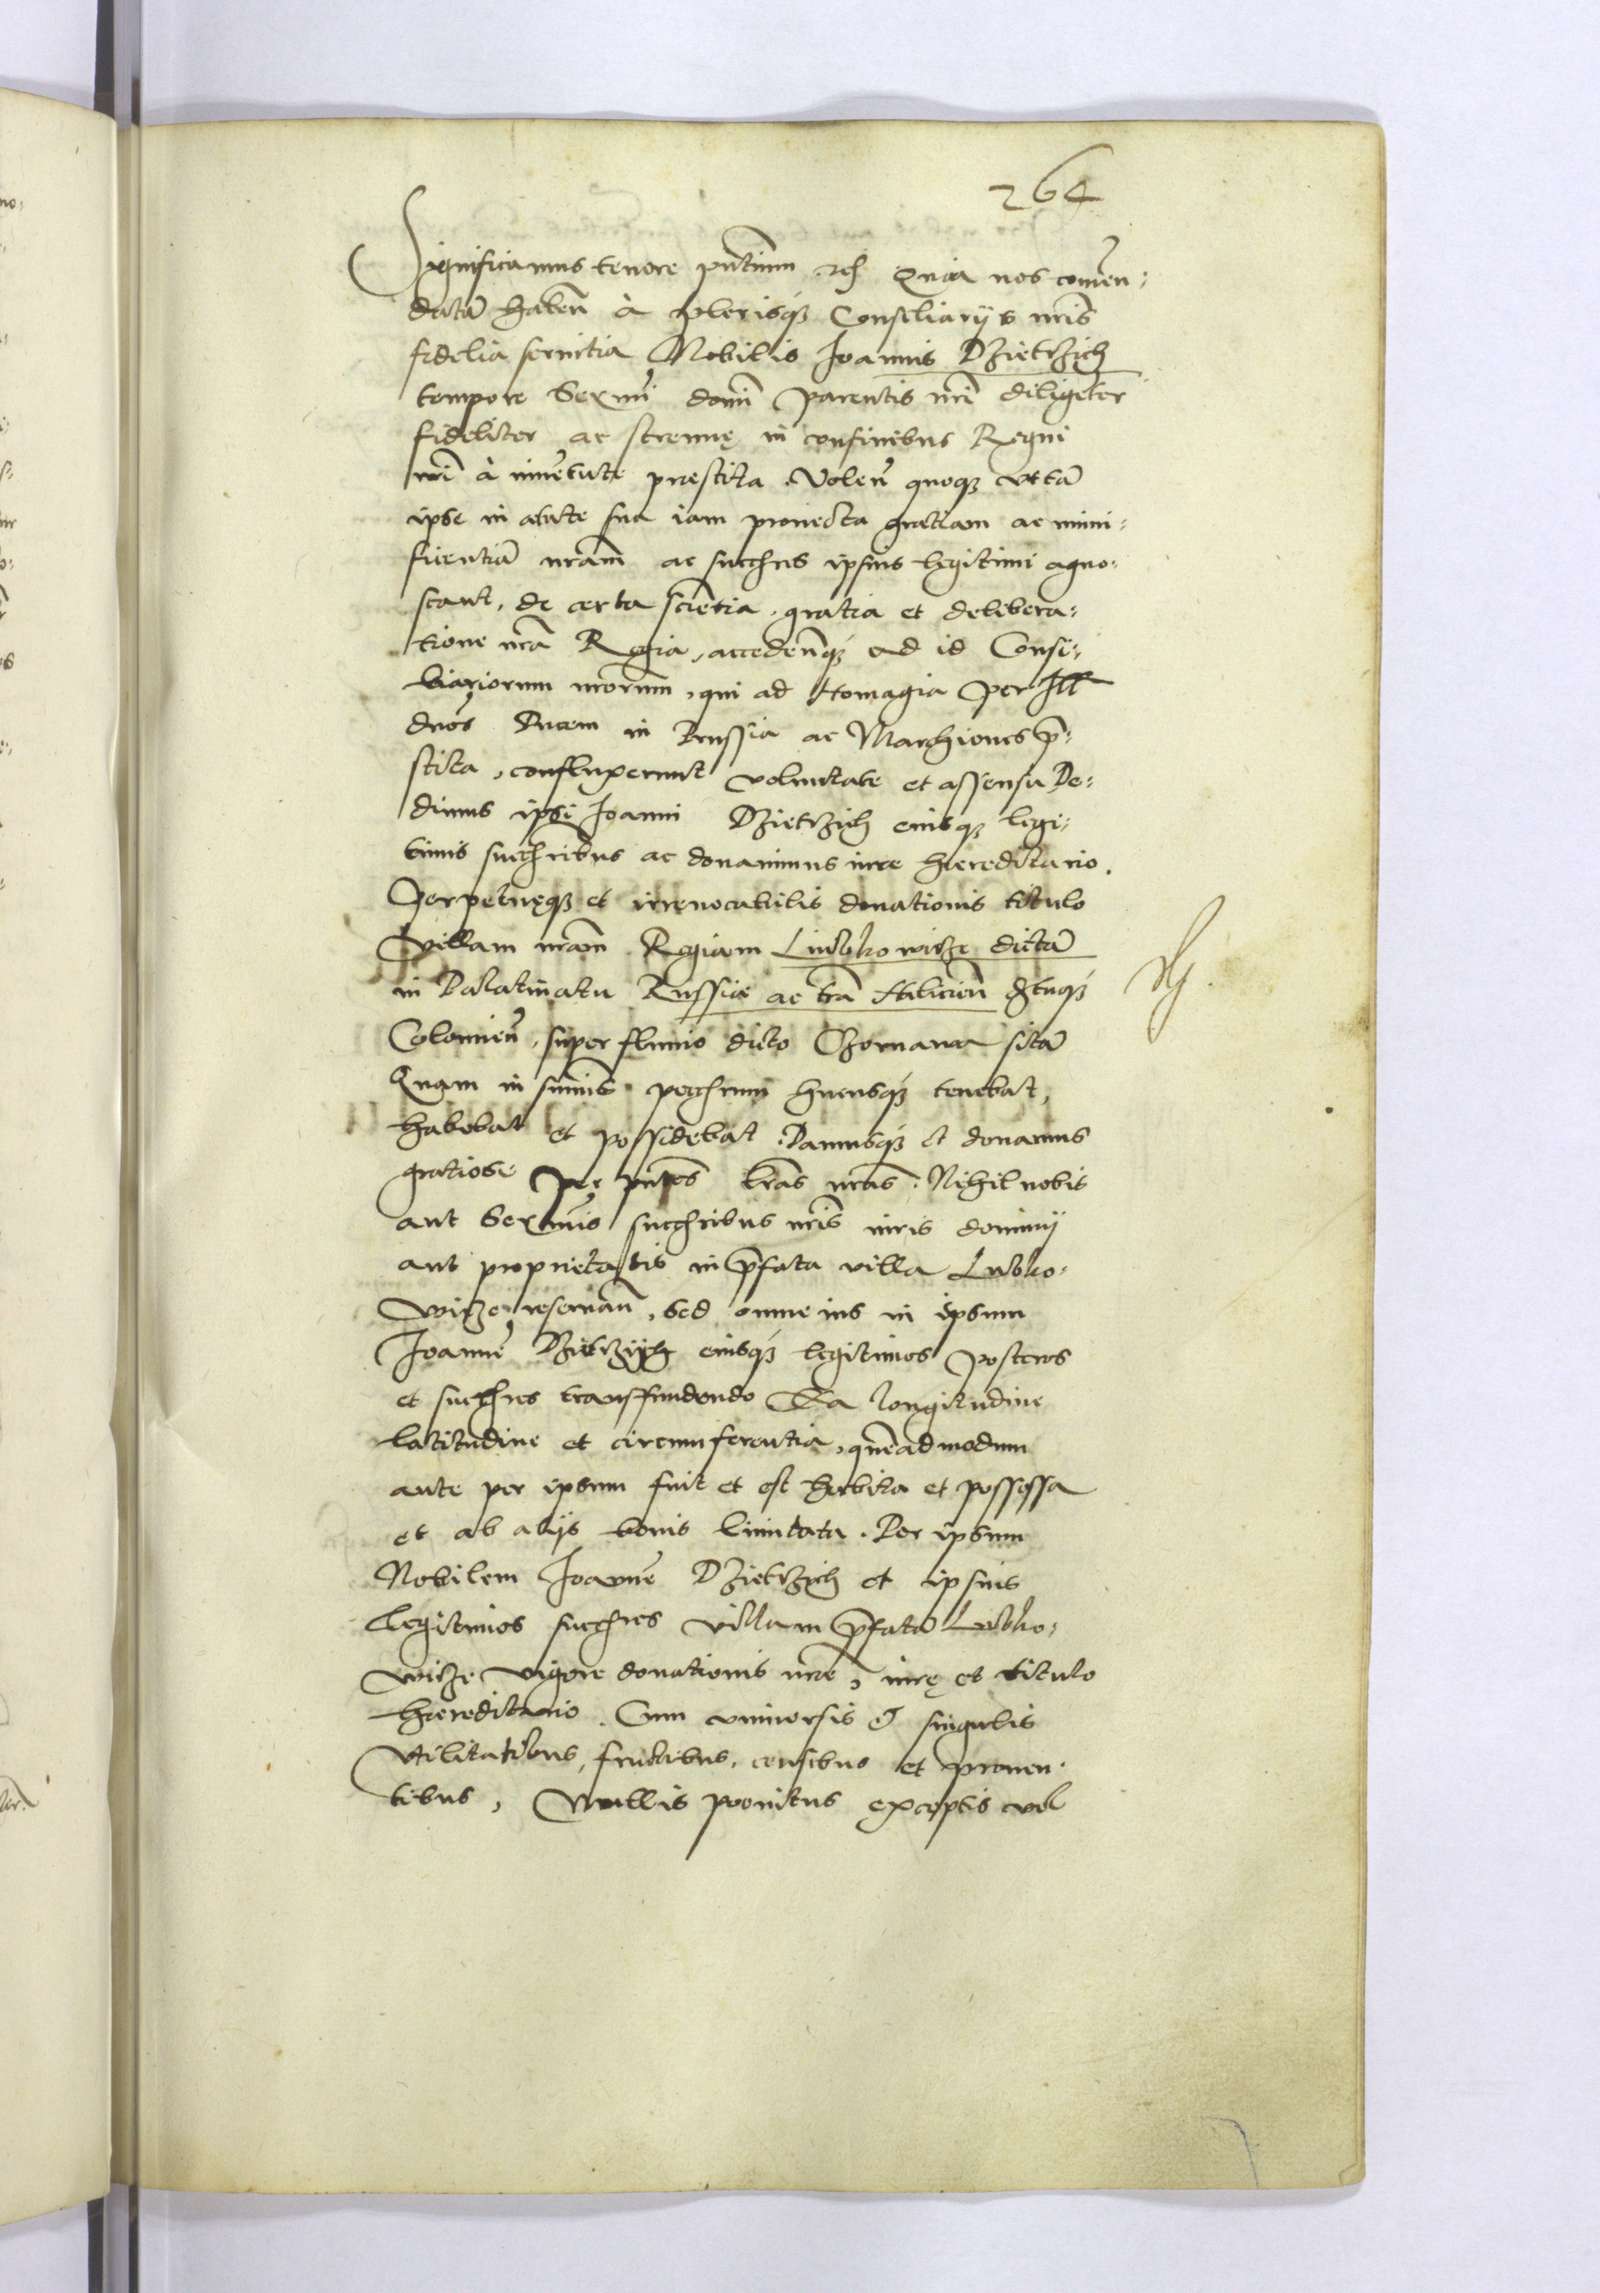 264
Significamus tenore pntium etc Quia nos comen:
datā habeñ à plerisq3 Consiliarijs nris
fidelia seruitia Nobilis Joannis Dzietrzich
tempore Sermi domi parentis nri diligēter
fideliter ac strenuę in confinibus Regni
nri à iuuētute prestita. Volen̄ quoq3 vt tā
ipse in ætate sua iam prouecta gratiam ac muni:
ficentiā nram̄ ac succrēs ipsius legitimi agno:
scant, de certa scientia, gratia et delibera:
tione nrā Regia, accedenq3 ad id Consi:
liariorum nrorum, qui ad Homagia per Ill
dnos Ducem in Prussia ac Marchiones p̄:
stita, confluxerunt voluntate et assensu De:
dimus ipsi Joanni Dzietrzich eiusq3 legi:
timis succribus ac donauimus iure hæreditario.
Perpetuęq3 et irreuocabilis donationis titulo
Villam nram̄ Regiam Liubkowicze dictā
in Palatinatu Russiæ ac trā Halicieñ dtuq3
Colomieñ, super fluuio dicto Czornawa sitā
Quam in summis pecchrum hucusq3 tenebat,
habebat et possidebat. Damusq3 et donamus
gratiose per pntes lrās nrās. Nihil nobis
aut Sermis succribus nris iuris dominij
aut proprietatis in p̄fata villa Lubko:
wicze reseruan̄, Sed omne ius in ipsum
Joannē Dzietrzych eiusq3 legitimos posteros
et succres transffundendo Ea longitudine
latitudine et circumferentia, quēadmodum
ante per ipsum fuit et est habita et possessa
et ab alijs bonis limitata. Per ipsum
Nobilem Joannē Dzietrzich et ipsius
legitimos succres villam p̄fatā Lubko:
wicze vigore donationis nrae, iurę et titulo
hæreditario. Cum vniuersis et singulis
Vtilitatibus, fructibus, censibus et prouen:
tibus, Nullis poenitus exceptis vel